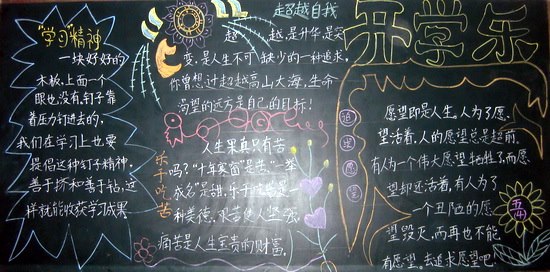 “学习”精神
一块好好的
木板,上面一个
眼也没有,钉子靠
着压力钉进去的,
我们在学习上也要
提倡这种钉子精神,
善于挤和善于钻,这
样就能收获学习成果
超越自我
超越是升华,是突
变,是人生不可缺少的一种追求,
你曾想过超越高山大海,生命
渴望的远方是自己的目标!
乐于吃苦
人生果真只有苦
吗?“十年寒窗”是苦,一举
成名”是甜,乐于吃苦是一
种美德,艰苦使人坚强,
痛苦是人生宝贵的财富.
开学乐
追求愿望
愿望即是人生。人为了愿
望活着,人的愿望总是超前,
有人为一个伟大愿望牺牲了,而愿
望却还活着,有人为了
一个丑陋的愿
望毁灭,而再也不能
有愿望,去追求愿望吧
五(4)